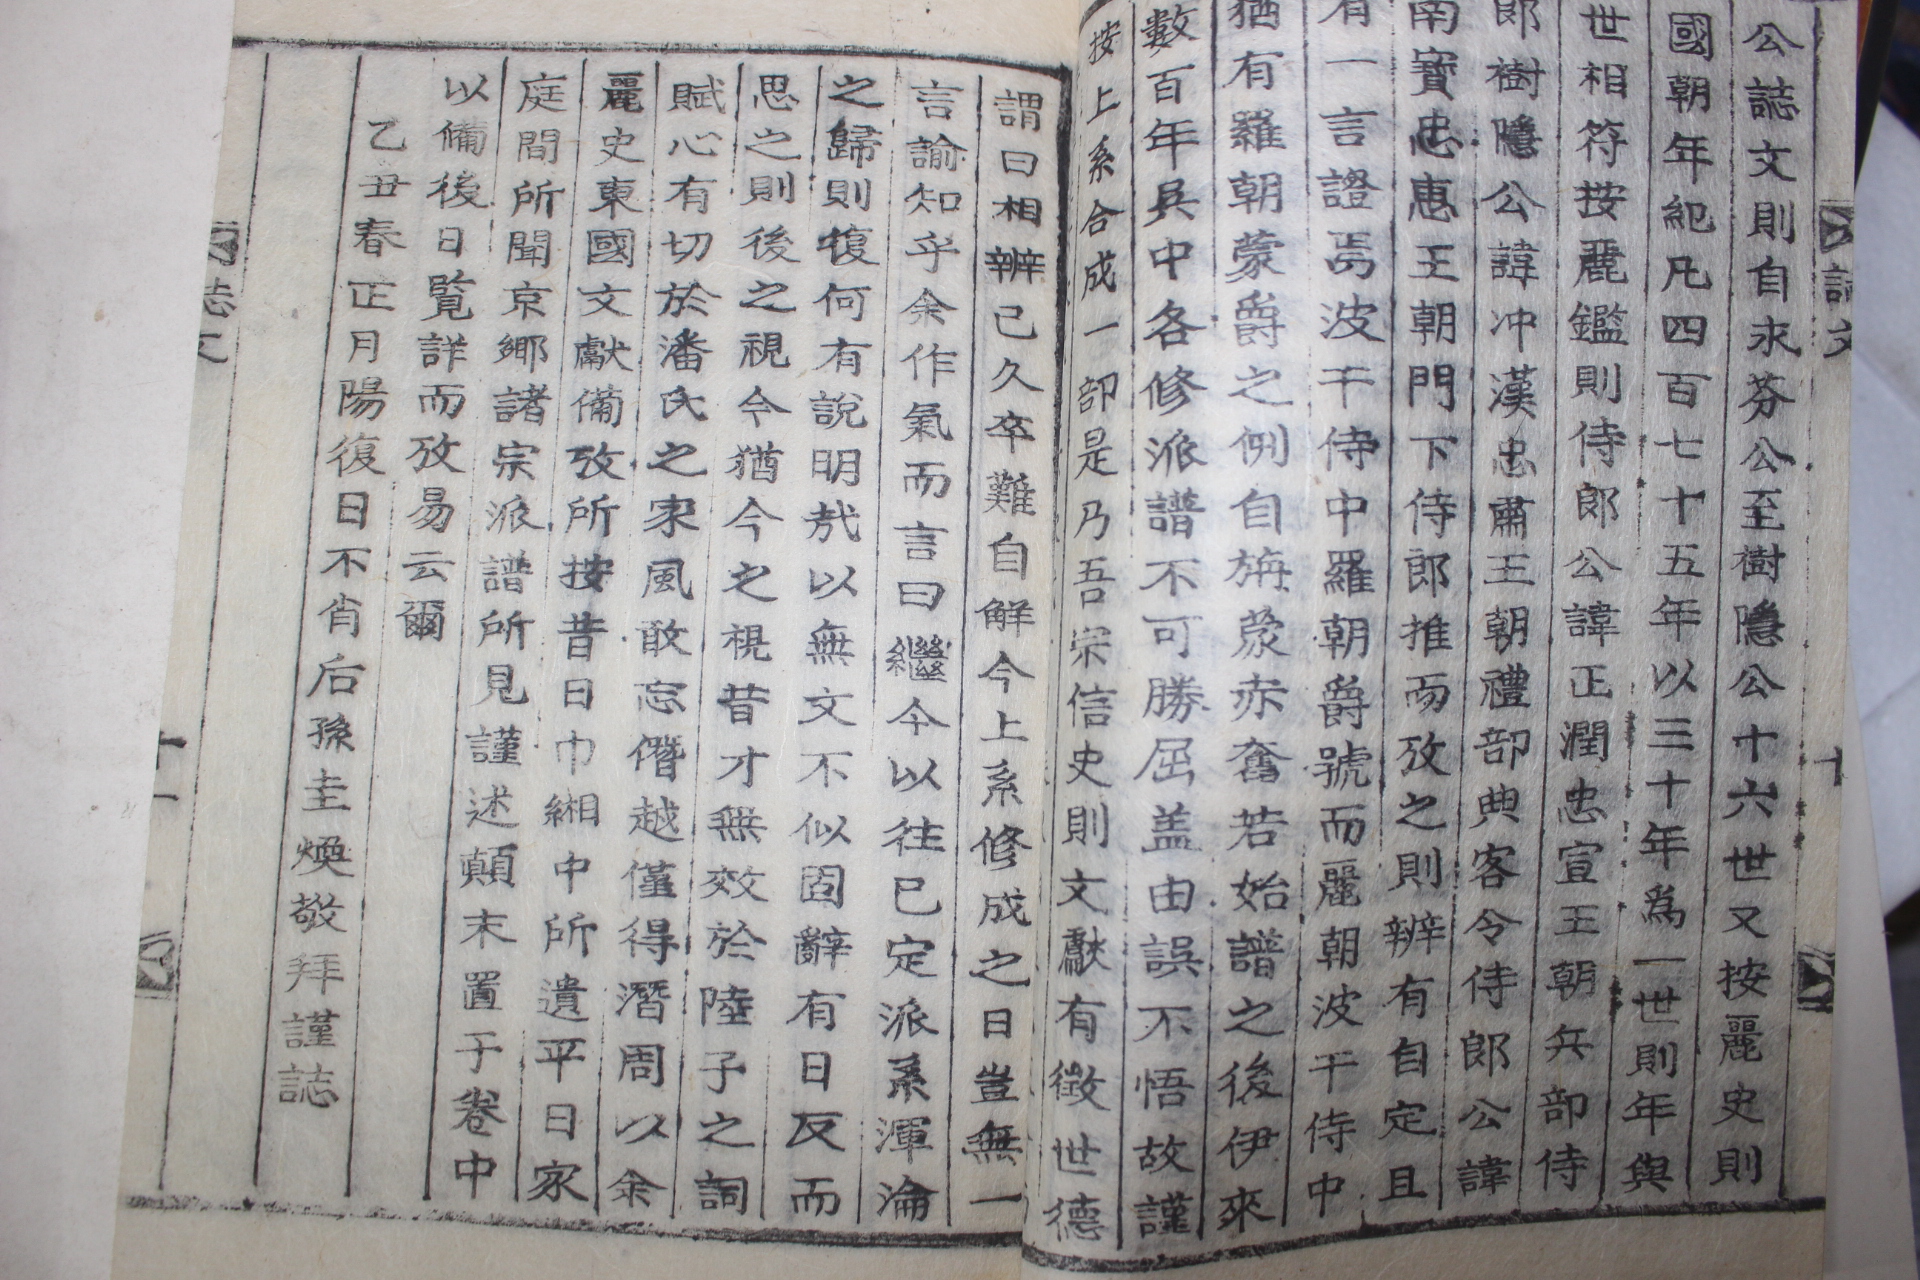 公誌文則自求芬公至樹隱公十六世又按麗史則
國朝年紀凡四百七十五年以三十年爲一世則年與
世相符按麗鑑則侍郎公諱正潤忠宣王朝兵部侍
郎樹隱公諱冲漢忠肅王朝禮部典客令侍郎公諱
南寶忠惠王朝門下侍郎推而攷之則辨有自定且
有一言證焉波干侍中羅朝爵號而麗朝波干侍中
猶有羅朝蒙爵之例自旃蒙赤奮若始譜之後伊來
數百年兵中各修派譜不可勝屈盖由誤不悟故謹
按上系合成一部是乃吾宗信史則文獻有徵世德
謂曰相辨已久卒難自解今上系修成之日豈無一
言諭知乎余作氣而言曰繼今以往已定派系渾淪
之歸則復何有說明㢤以無文不似固辭有日反而
思之則後之視今猶今之視昔才無效於陸子之詞
賦心有切於潘氏之家風敢忘僭越僅得潛周以余
麗史東國文獻備攷所按昔日巾緗中所遺平日家
庭間所聞京鄉諸宗派譜所見謹述顛末置于卷中
以備後日覽詳而攷易云爾
乙丑春正月陽復日不肖后孫圭煥敬拜謹誌
誌文
十
誌文
十一